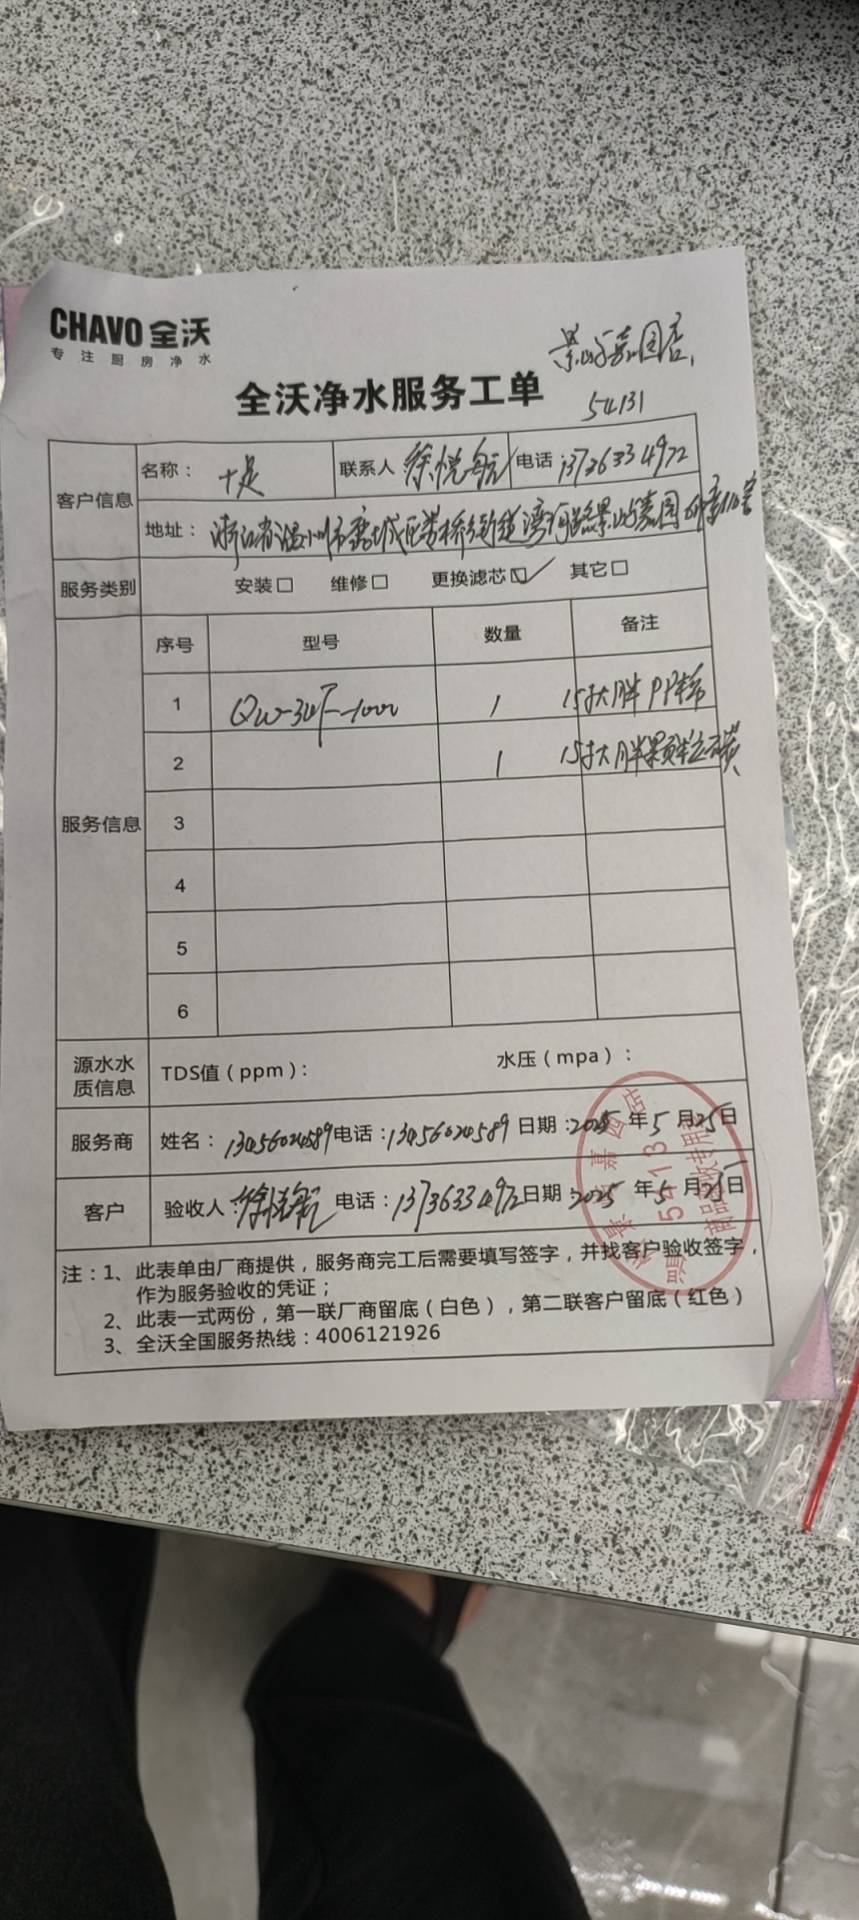 CHAVO 全沃
专注厨房净水
景山嘉园店
54131
全沃净水服务工单
客户信息
名称： 十足 联系人 徐悦航 电话 13726334972
地址： 浙江省温州市鹿城区 景山嘉园
服务类别 安装□ 维修□ 更换滤芯☑ 其它□
服务信息
序号 型号 数量 备注
1 QW-3UF-1000 1 15寸大胖PP棉
2 1 15寸大胖颗粒炭
3
4
5
6
源水水质信息 TDS值（ppm）： 水压（mpa）：
服务商 姓名：13456024589 电话：13456024589 日期：2025年5月25日
客户 验收人：徐悦航 电话：13736334972 日期：2025年5月25日
注：1、此表单由厂商提供，服务商完工后需要填写签字，并找客户验收签字，
作为服务验收的凭证；
2、此表一式两份，第一联厂商留底（白色），第二联客户留底（红色）
3、全沃全国服务热线：4006121926
嘉园店
5413
商品验收专用